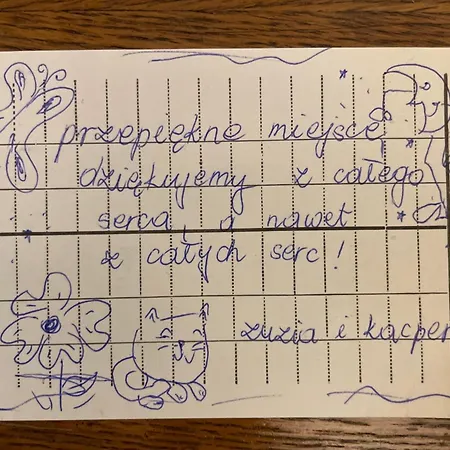 przepiękne miejsce
dziękujemy z całego
serca, a nawet
z całych serc!
zuzia i kacper